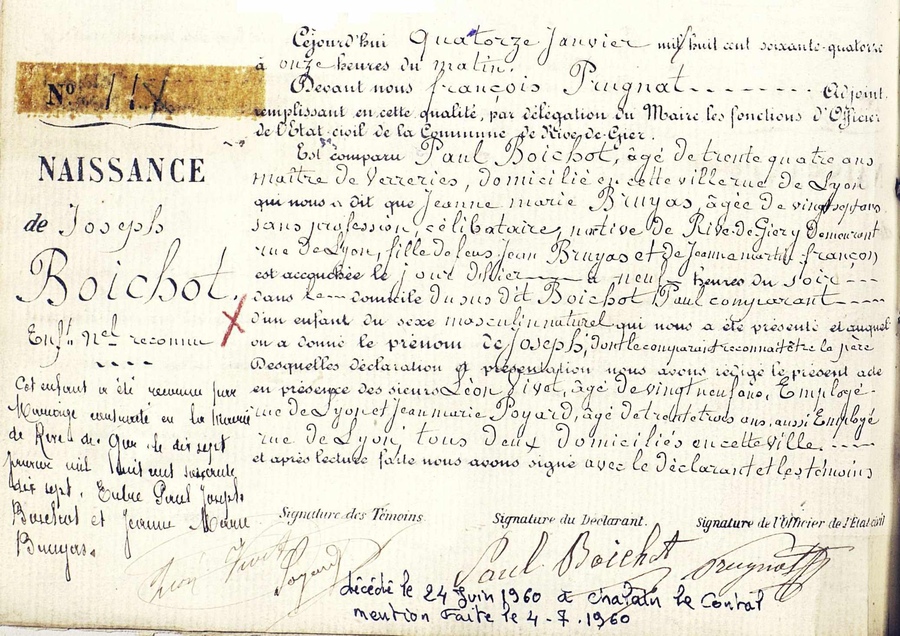 Nº 11
NAISSANCE
de Joseph
Boichot.
Enft. Nel reconnu
Cet enfant a été reconnu par
Mariage contracté en la Mairie
de Rive de Gier, le dix sept
mil huit cent soixante
dix sept. Entre Paul Joseph
Boichot et Jeanne Marie
Bruyas.
Cejourd'hui Quatorze Janvier mil huit cent soixante-quatorze
à onze heures du matin.
Devant nous françois Prugnat Adjoint
remplissant en cette qualité, par délégation du Maire les fonctions d'Officier
de l'Etat civil de la Commune de Rive-de-Gier.
Est comparu Paul Boichot, âgé de trente quatre ans
maître de Verreries, domicilié en cette ville rue de Lyon
qui nous a dit que Jeanne marie Bruyas, âgée de vingt sept ans
sans profession, célibataire, native de Rive-de-Giery Demeurant
rue De Lyon, fille de feus Jean Bruyas et de Jeanne martin françon
est accouchée le jour d'hier à neuf heures du soir
dans le domicile du sus dit Boichot Paul comparant
d'un enfant du sexe masculin naturel qui nous a été présenté et auquel
on a donné le prénom de Joseph, dont le comparant reconnait être le père
Desquelles déclaration et présentation nous avons rédigé le présent acte
en présence des sieurs Léon Vivet, âgé de vingt neuf ans, Employé
rue de Lyon et Jean marie Poyard, âgé de trente trois ans, aussi Employé
rue de Lyon, tous deux domiciliés en cette ville.
et après lecture faite nous avons signé avec le déclarant et les témoins
Signature des Témoins. Signature du Déclarant. Signature de l'Officier de l'Etat civil
Léon Vivet Poyard Paul Boichot Prugnat
décédé le 24 Juin 1960 à Chalain le Comtal
mention faite le 4-7-1960